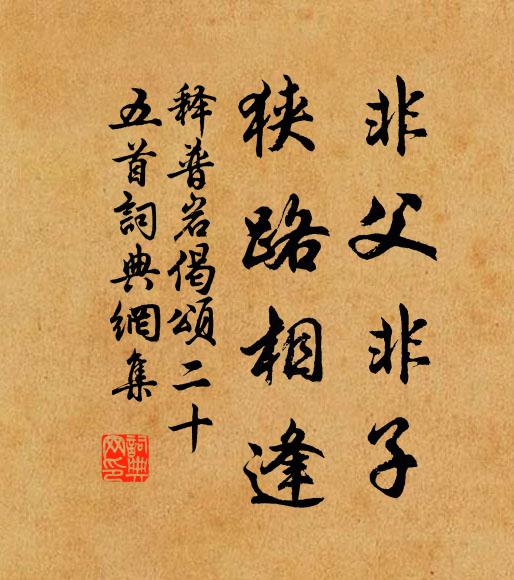 非父非子
狭路相逢
释普岩偈頌二十
五首詞典網集
詞典網印